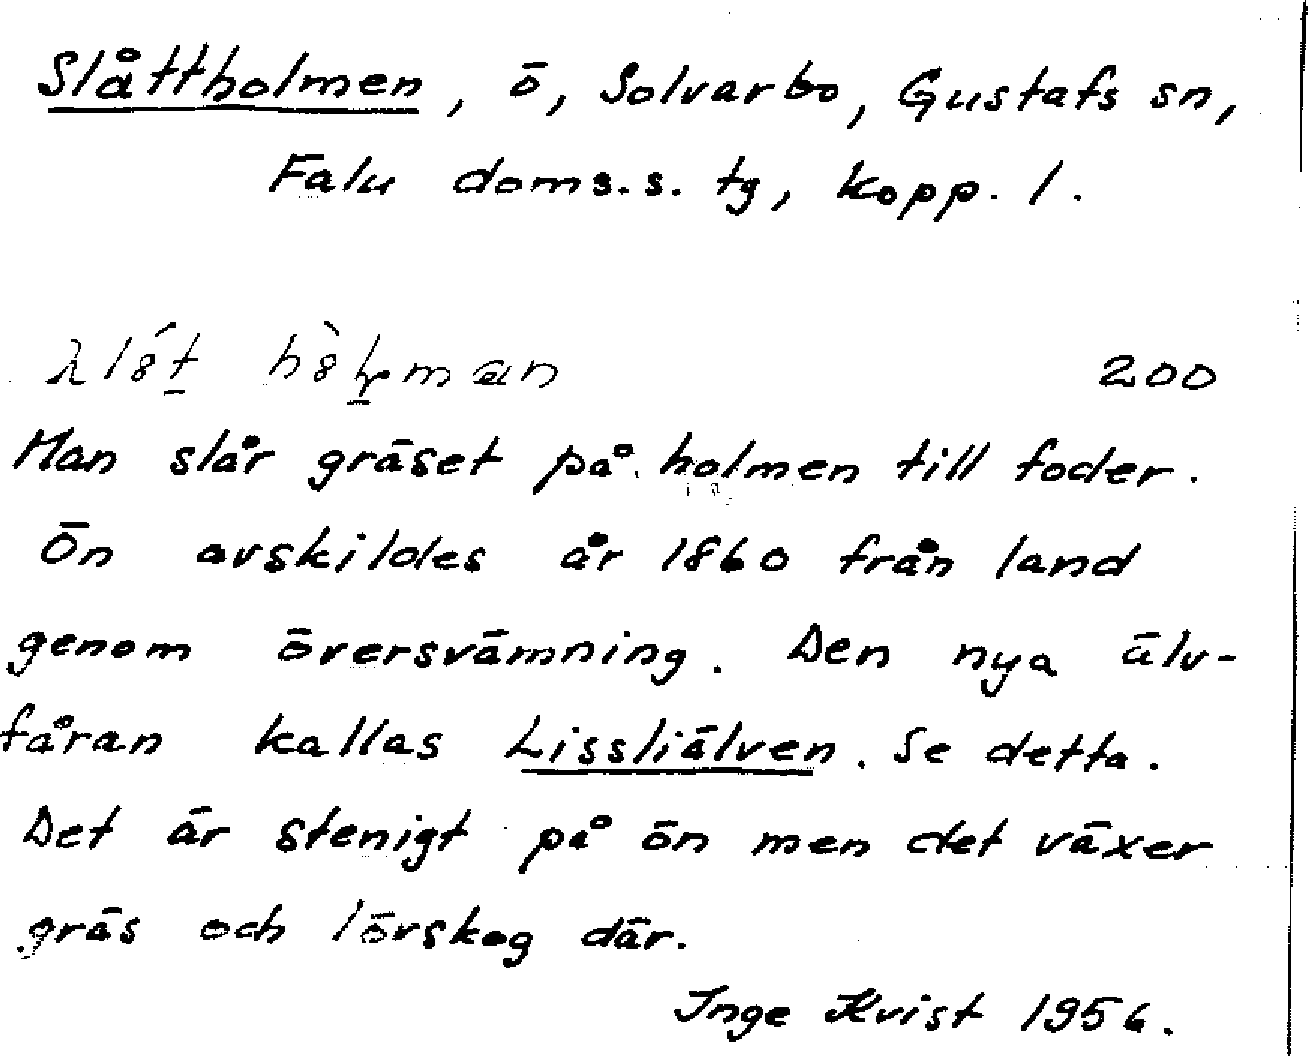 Slåttholmen, ö, Solvarbo, Gustafs sn,
Falu doms.s. tg, Kopp. l.
200
Man slår gräset på holmen till foder.
Ön avskildes år 1860 från land
genom översvämning. Den nya älv-
fåran kallas Lissliälven. Se detta.
Det är stenigt på ön men det växer
gräs och lövskog där.
Inge Kvist 1956.